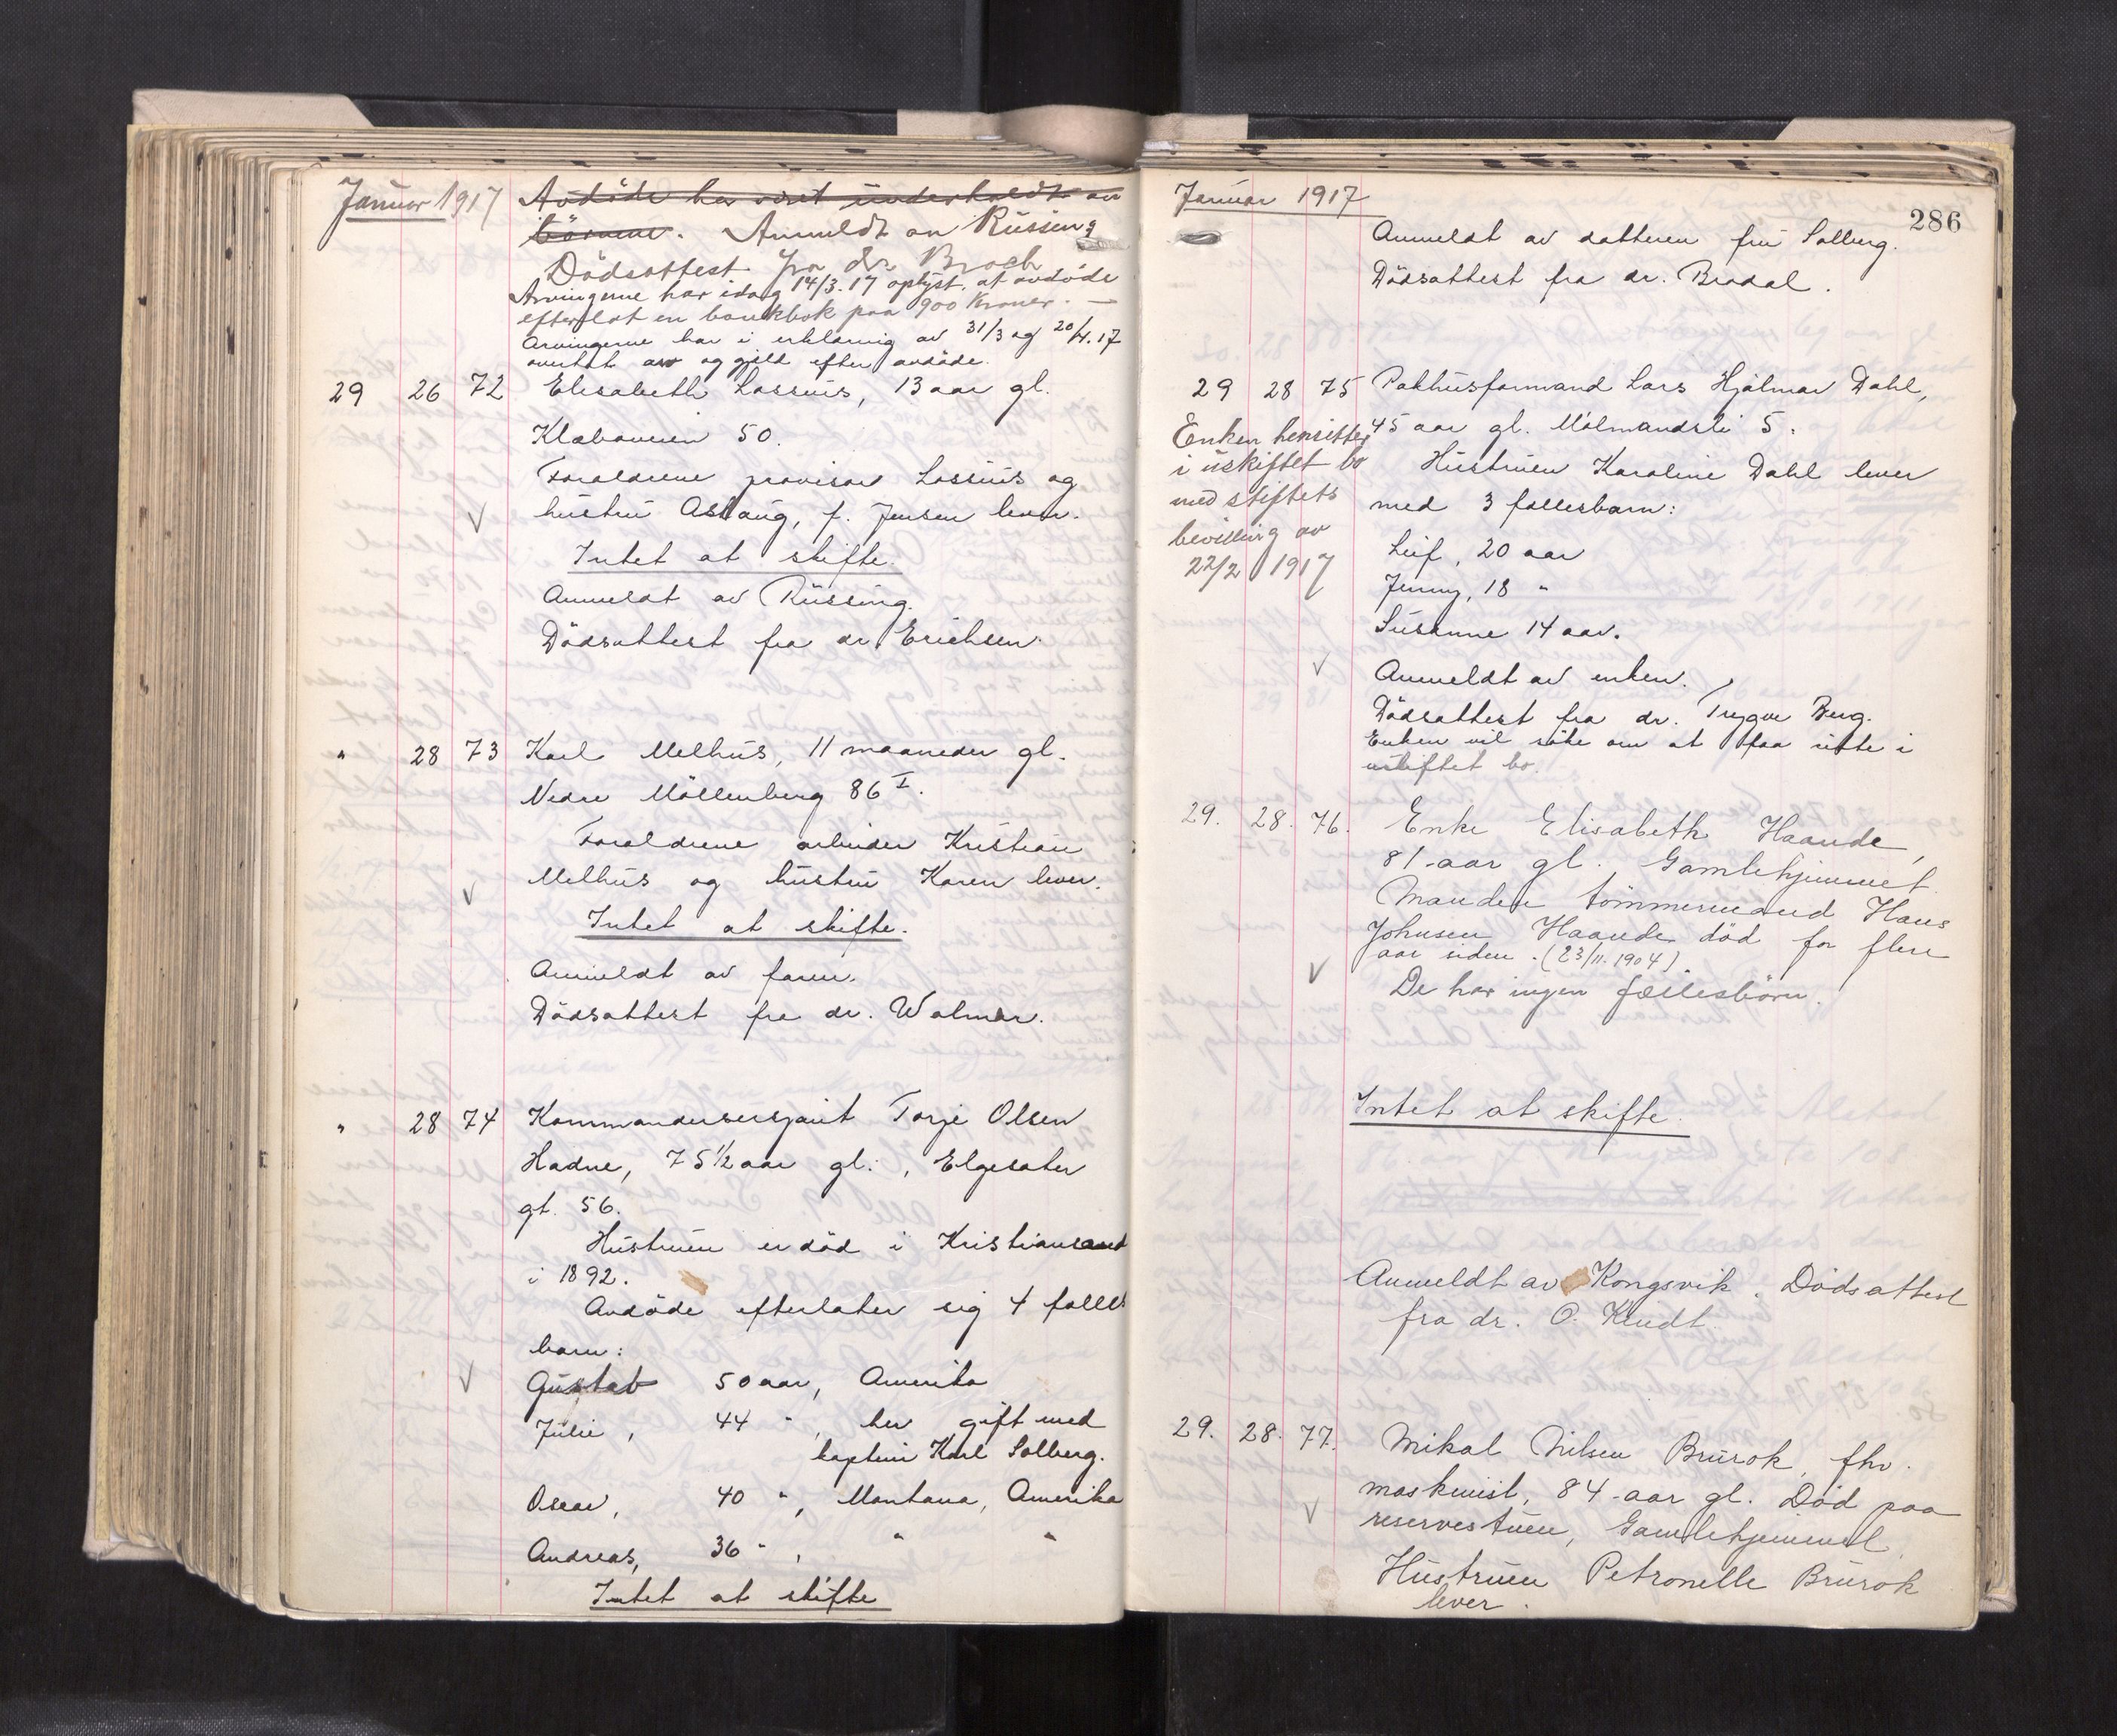 Januar 1917
Avdöde har vært underholdt av
börnene. Anmeldt av Rüssing
Dödsattest fra dr. Broch
Arvingerne har idag 14/3.17 oplyst, at avdöde
efterlot en bankbok paa 900 Kroner. —
Arvingerne har i erklæring av 31/3 og 20/4.17
overtat arv og gjæld efter avdöde.
29 26 72 Elisabeth Lossius, 13 aar gl.
Klæbuveien 50.
Forældrene provisor Lossius og
hustru Aslaug, f. Jensen lever.
Intet at skifte.
Anmeldt av Rüssing.
Dödsattest fra dr Erichsen.
" 28 73 Karl Melhus, 11 maaneder gl.
Nedre Möllenberg 86 I.
Forældrene arbeider Kristian
Melhus og hustru Karen lever.
Intet at skifte.
Anmeldt av faren.
Dödsattest fra dr. Walmar.
" 28 74 Kommandersersjant Torje Olsen
Hadne, 75 1/2 aar gl., Elgesæter
gt. 56.
Hustruen er död i Kristiansand
i 1892.
Avdöde efterlater sig 4 fælles
barn:
Gustav 50 aar, Amerika
Julie, 44 " , her gift med
kaptein Karl Solberg.
Oscar, 40 " , Montana, Amerika
Andreas, 36 " , " "
Intet at skifte
Januar 1917
286
Anmeldt av datteren fru Solberg.
Dödsattest fra dr. Bradal.
29 28 75 Pakhusformand Lars Hjalmar Dahl,
45 aar gl. Målmandsli 5.
Hustruen Karoline Dahl lever
med 3 fællesbarn:
Leif, 20 aar
Jenny, 18 "
Susanne 14 aar.
Anmeldt av enken.
Dödsattest fra dr. Trygve Berg.
Enken vil söke om at faa sitte i
uskiftet bo.
Enken hensitter
i uskiftet bo
med stiftets
bevilling av
22/2 1917
29. 28. 76. Enke Elisabeth Haande,
81 aar gl. Gamlehjemmet.
Manden tömmermand Hans
Johnsen Haande död for flere
aar siden. (23/11.1904).
De har ingen fællesbörn.
Intet at skifte.
Anmeldt av Kongsvik. Dödsattest
fra dr. O. Kindt.
29. 28. 77. Mikal Nilsen Brurok, fhv.
maskinist, 84 aar gl. Död paa
reservestuen, Gamlehjemmet.
Hustruen Petronelle Brurok
lever.